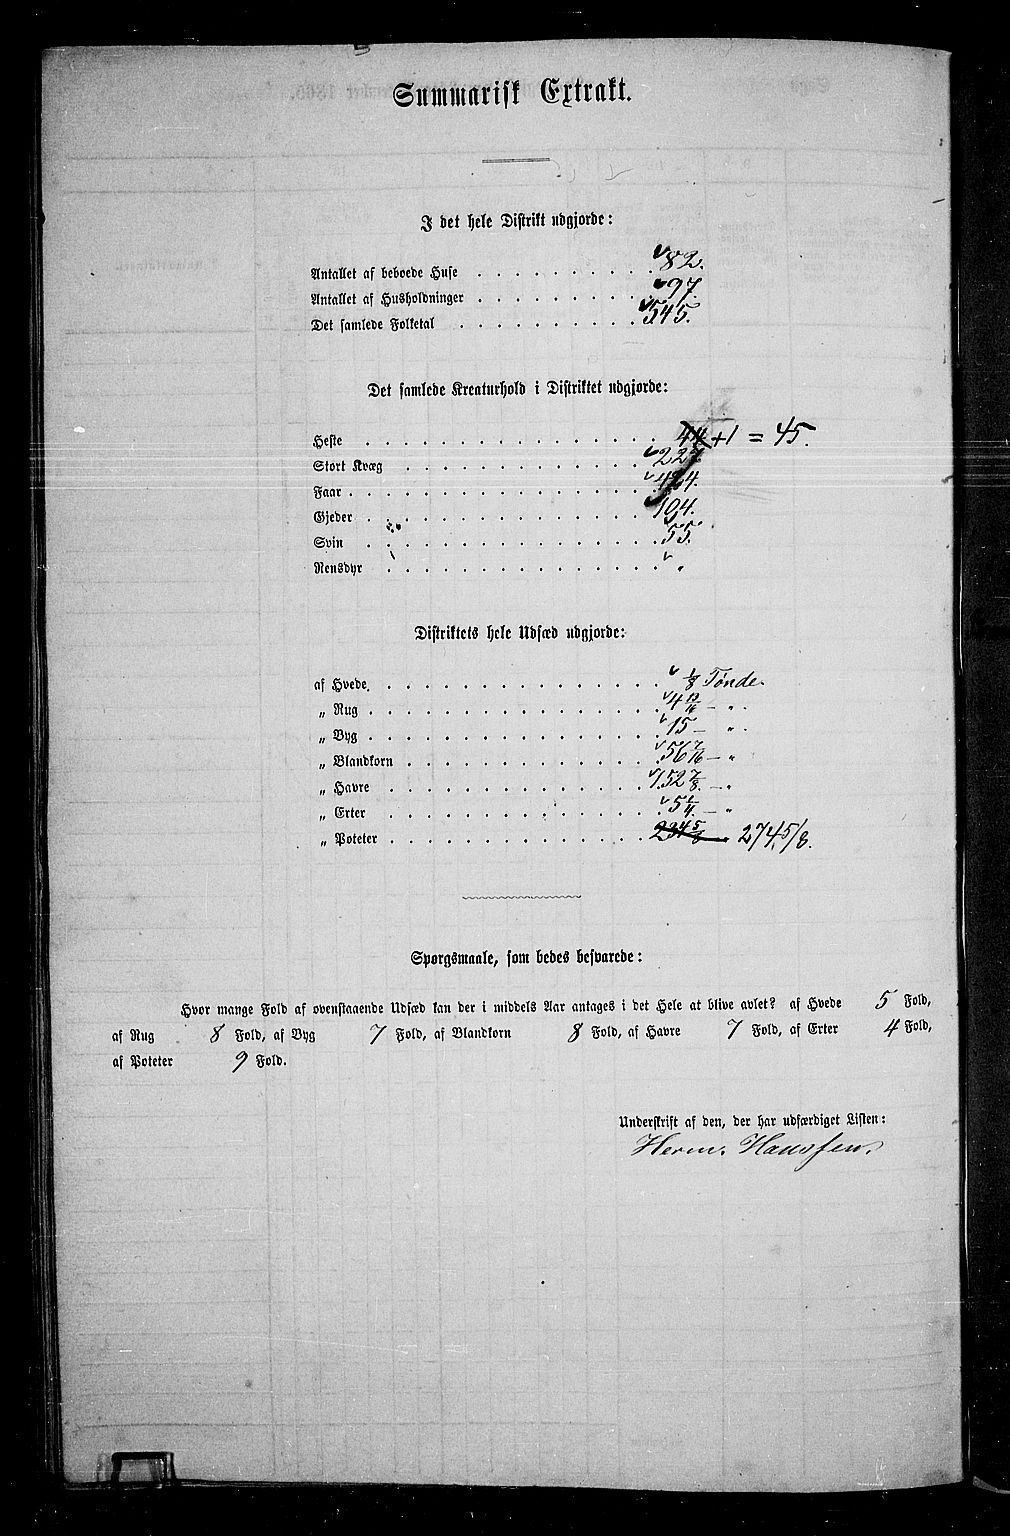 Summarisk Extrakt.
I det hele Distrikt udgjorde:
Antallet af beboede Huse . . . . . . . . . . 82.
Antallet af Husholdninger . . . . . . . . . . 97.
Det samlede Folketal . . . . . . . . . . 545.
Det samlede Kreaturhold i Distriktet udgjorde:
Heste . . . . . . . . . . 44 + 1 = 45.
Stort Kvæg . . . . . . . . . . 227
Faar . . . . . . . . . .
Gjeder . . . . . . . . . . 104.
Svin . . . . . . . . . . 55.
Rensdyr . . . . . . . . . . "
Distriktets hele Udsæd udgjorde:
af Hvede . . . . . . . . . . 1/8 Tønde.
„ Rug . . . . . . . . . . 4 13/16 — ".
„ Byg . . . . . . . . . . 15 — ".
„ Blandkorn . . . . . . . . . . 56 7/16 — "
„ Havre . . . . . . . . . . 152 7/8. — "
„ Erter . . . . . . . . . . 5 1/4. — "
„ Poteter . . . . . . . . . . 234 5/8 274,5/8.
Spørgsmaale, som bedes besvarede:
Hvor mange Fold af ovenstaaende Udsæd kan der i middels Aar antages i det Hele at blive avlet? af Hvede 5 Fold,
af Rug 8 Fold, af Byg 7 Fold, af Blandkorn 8 Fold, af Havre 7 Fold, af Erter 4 Fold,
af Poteter 9 Fold.
Underskrift af den, der har udfærdiget Listen:
Herm. Hanssen.